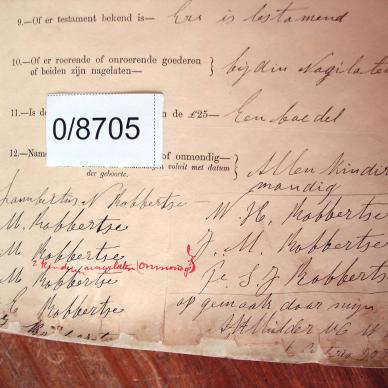 9.—Of er testament bekend is— Er is testamend
10.—Of er roerende of onroerende goederen
of beiden zijn nagelaten— } bij din Nagilaten
11.—Is de de £25— Een boedel
0/8705
12.—Name of onmondig—
voluit met datum
der geboorte. } Allen kinder
mondig
Lambertus N Robbertse W. H. Robbertse
M. Robbertse J. M. Robbertse
M Robbertse
2 kinders nagelaten (onmondig)
M Robbertse S. J. Robbertse
C Robbertse op gemaak daar mijn